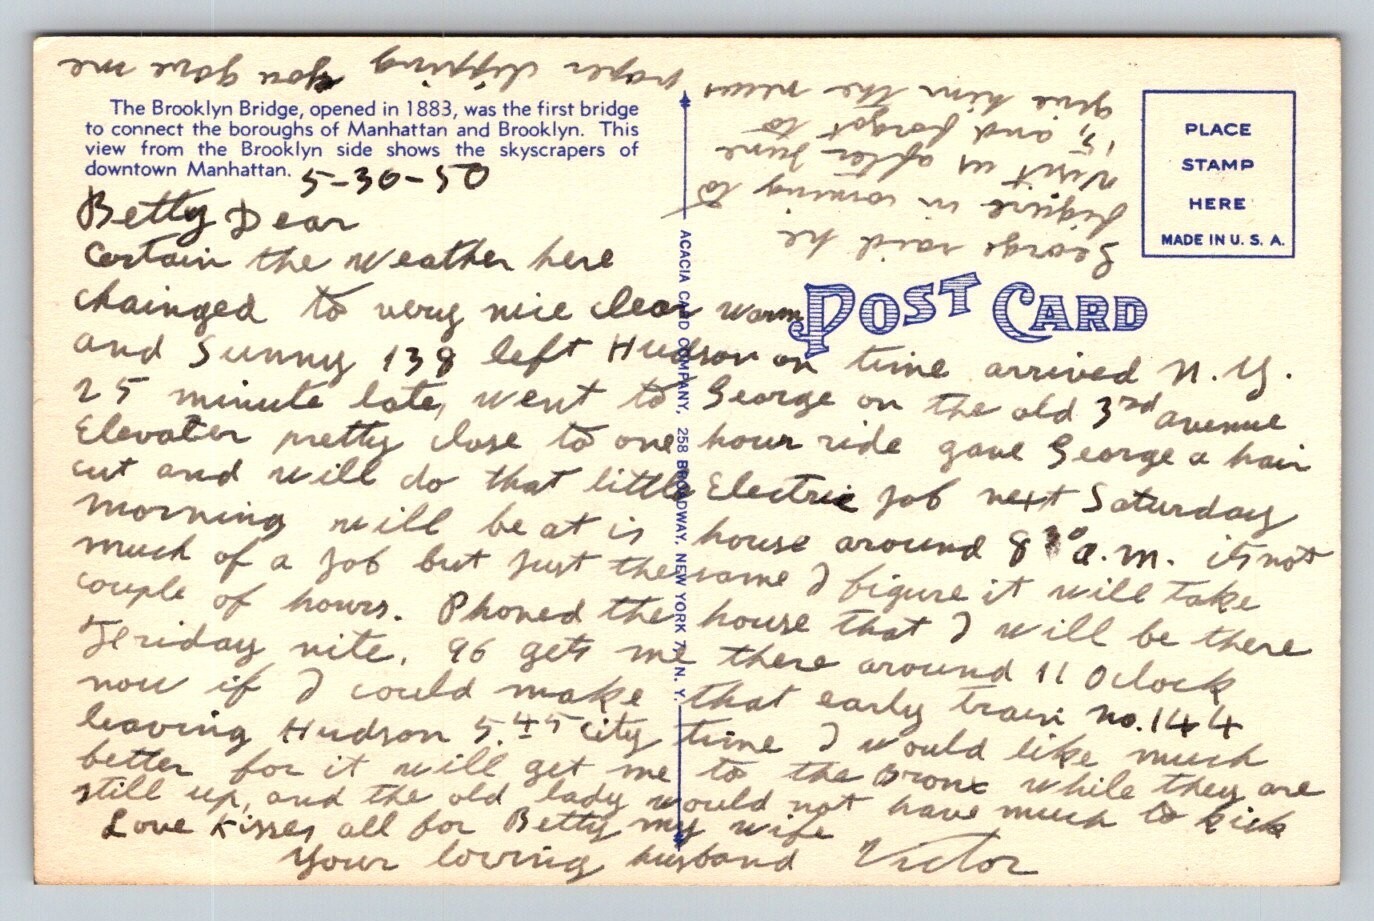 The Brooklyn Bridge, opened in 1883, was the first bridge
to connect the boroughs of Manhattan and Brooklyn. This
view from the Brooklyn side shows the skyscrapers of
downtown Manhattan.
5-30-50
Betty Dear
Certain the weather here
chainged to very nice clear warm
and Sunny 138 left Hudson on time arrived N.Y.
25 minute late, went to George on the old 3rd avenue
Elevater pretty close to one hour ride gave George a hair
cut and will do that little Electric job next Saturday
morning will be at is house around 8 30 a.m. its not
much of a job but just the same I figure it will take
couple of hours. Phoned the house that I will be there
Friday nite. 96 gets me there around 11 Oclock
now if I could make that early train no. 144
leaving Hudson 5.45 city time I would like much
better for it will get me to the Bronx while they are
still up, and the old lady would not have much to kick
Love Kisses all for Betty my wife
Your loving husband Victor
George said he
figure in coming to
visit us after June
15, and forgot to
give him the news
paper clipping you gave me
PLACE
STAMP
HERE
MADE IN U. S. A.
POST CARD
ACACIA CARD COMPANY, 258 BROADWAY, NEW YORK 7, N. Y.